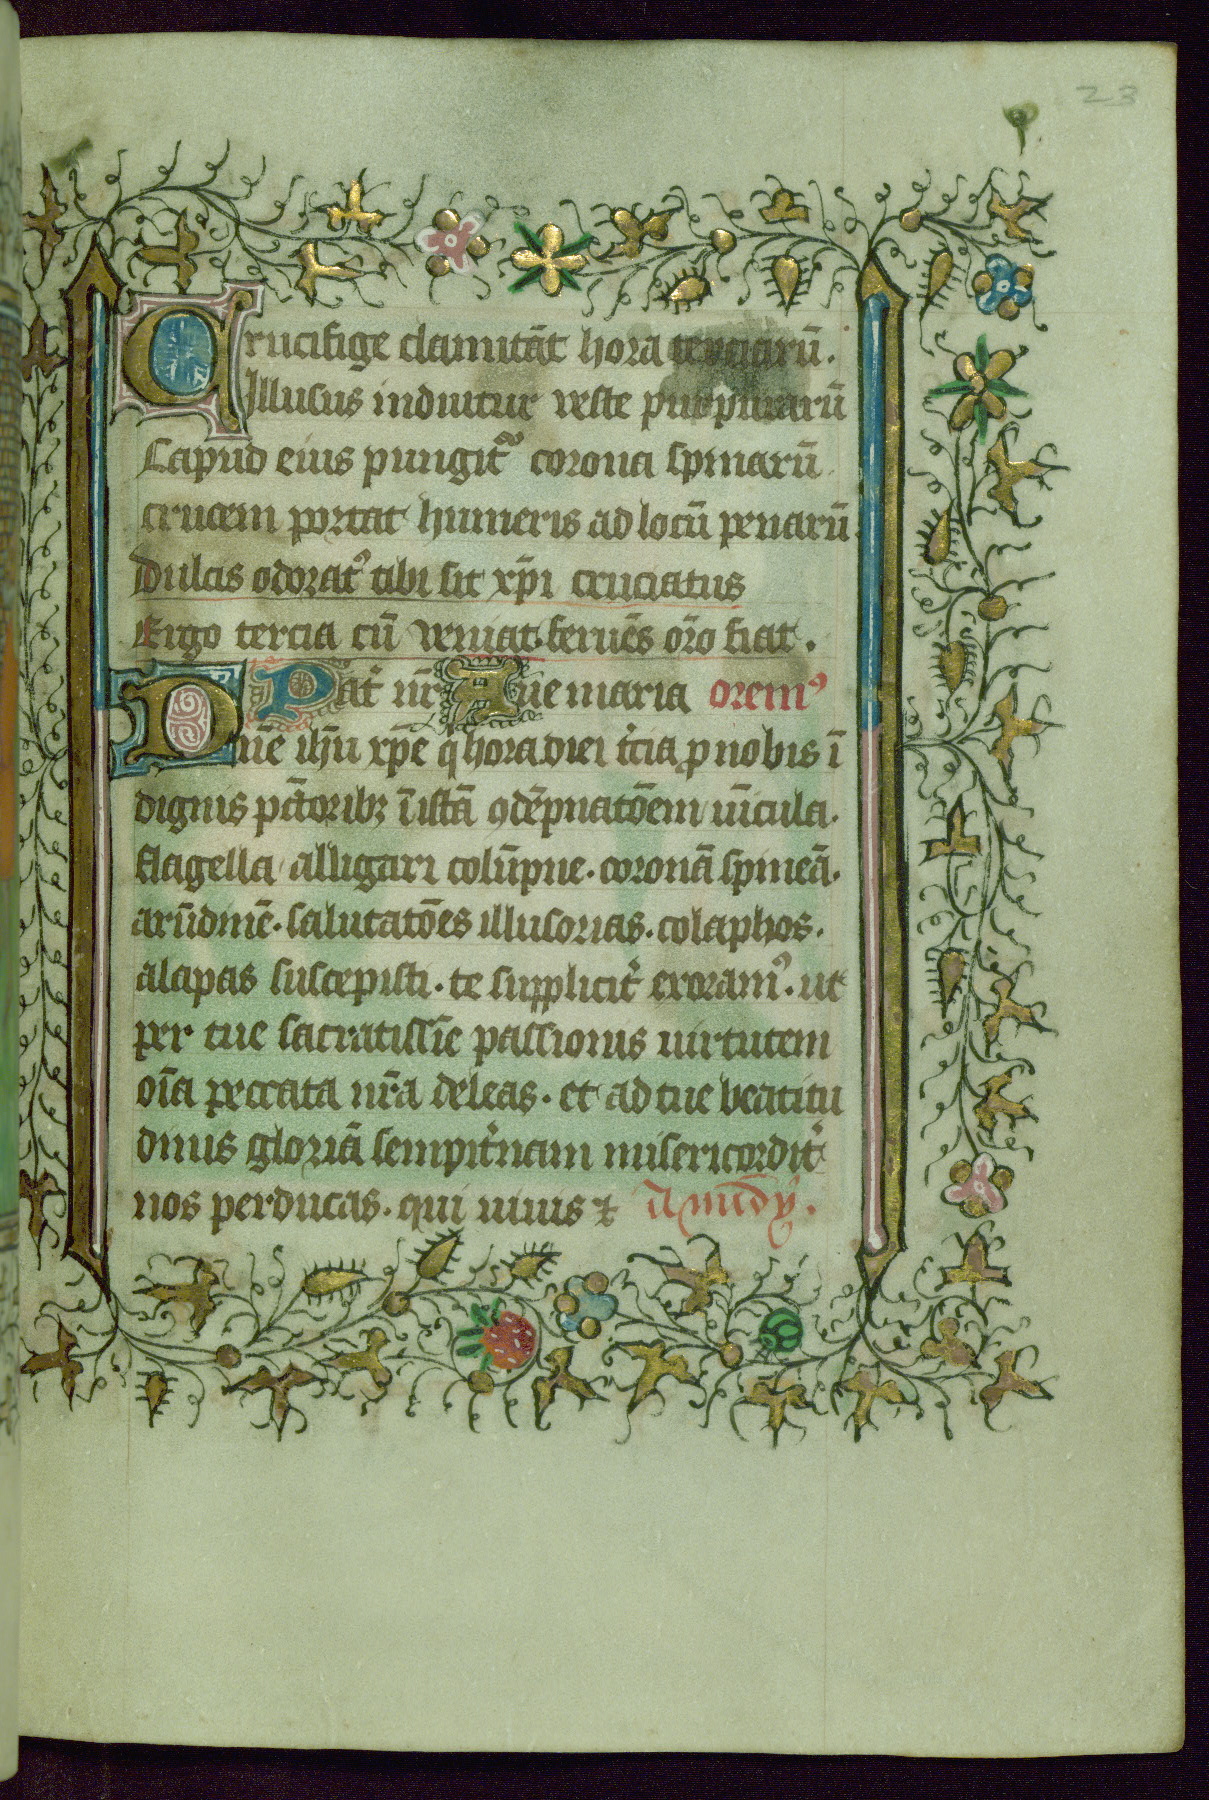 23
Crucifige clamitāt hora terciarū.
Illusus induitur veste purpurarū
Capud eius pungitᷓ corona spinarū
crucem portat humeris ad locū penarū.
Dulcis odoratꝰ tibi sit xp̄i cruciatus
Ergo tercia cū veniat feruēs or̄o fiat.
Pat̓ nr̄ Aue maria oremꝰ
Dn̄e ih̄u xp̄e q̄ hora diei t̓cia ꝓ nobis ī
dignis pc̄toribꝫ ī istā ꝯdēpnatōem vīcula.
flagella alligari colūpne. coronā spineā.
arūdinē. salutatōes illusorias. colaphos.
alapas suscepisti. te supplicit̓ exoramꝰ. ut
per tue sacratissīe passionis uirtutem
oīa peccata nr̄a deleas. et ad tue beatitu
dinis gloriā sempit̓nam misericordit̓
nos perducas. qui uiuis ⁊